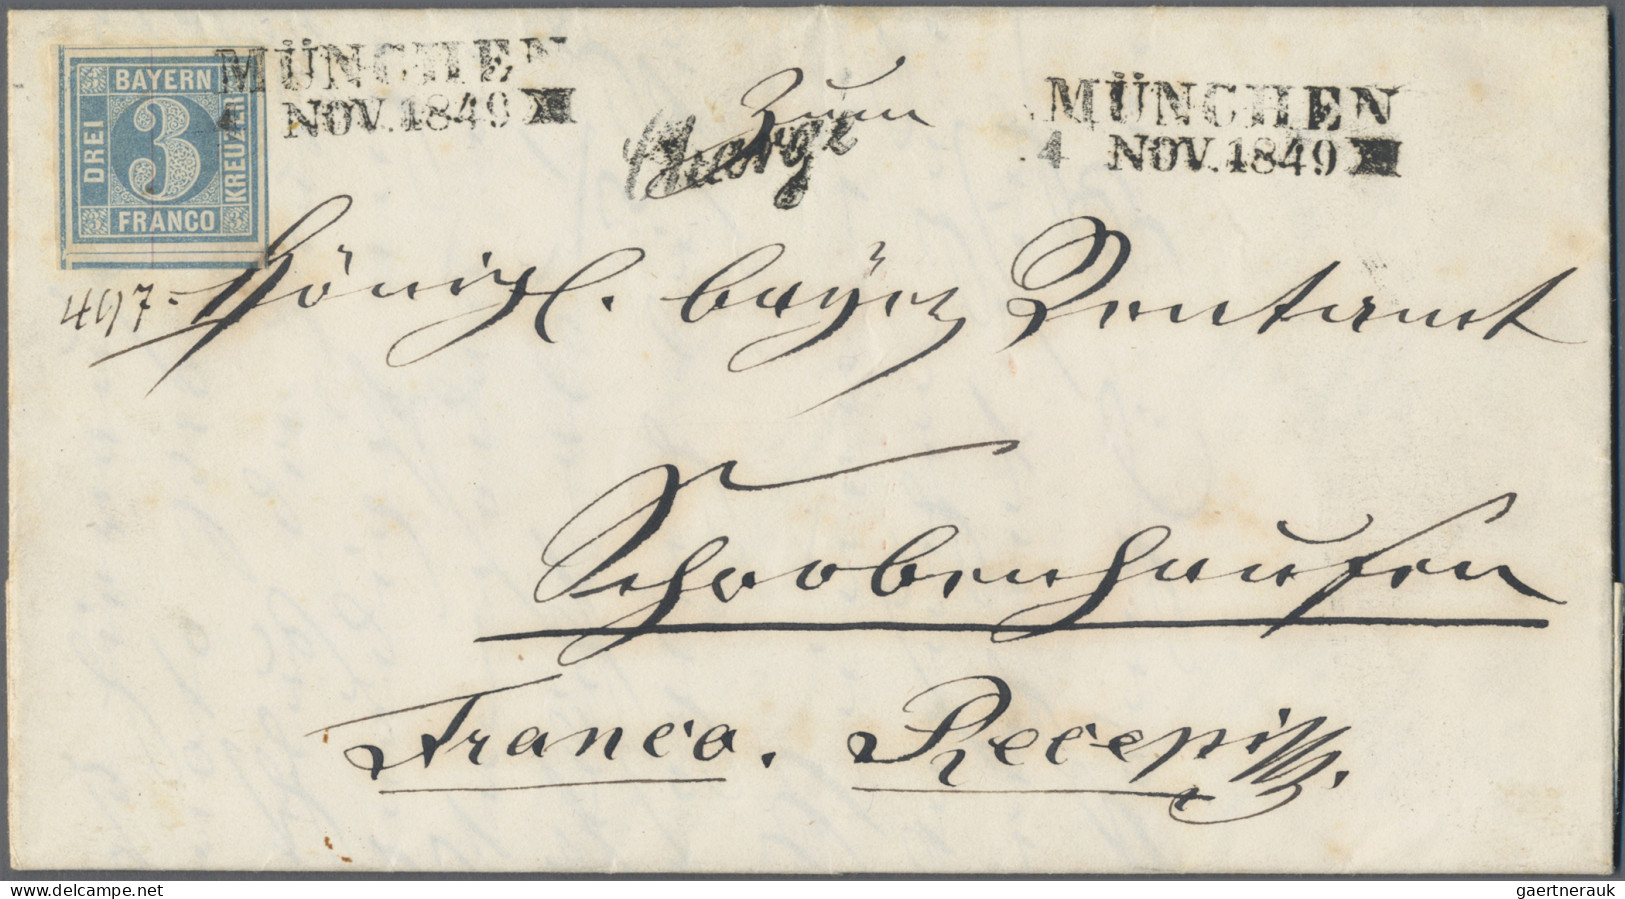 BAYERN
DREI
3
KREUZER
FRANCO
MÜNCHEN
4 NOV. 1849 XII
MÜNCHEN
4 NOV. 1849 XII
Zum
Charge
497.
Königl. bayer Rentamt
Schrobenhausen
Franco. Recepisse.
www.delcampe.net
gaertnerauk